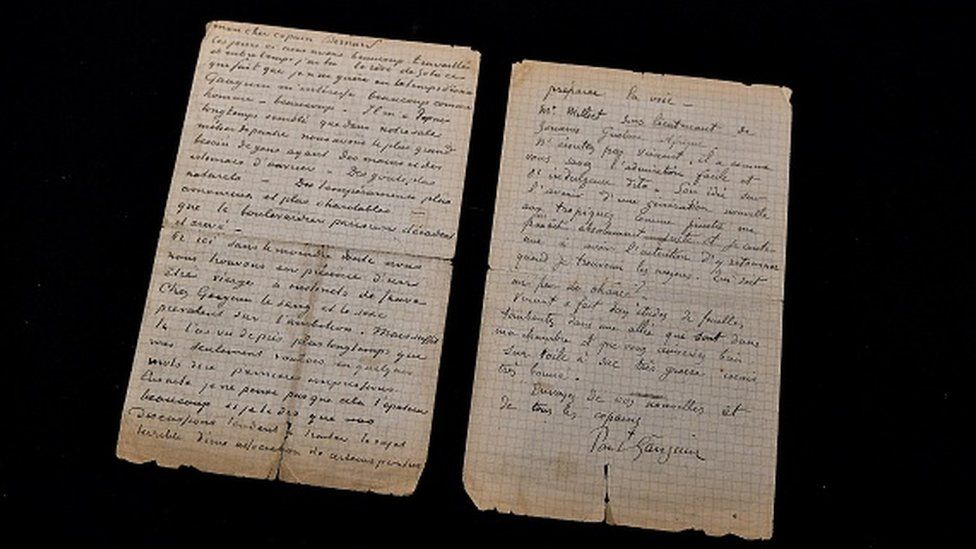 mon cher copain Bernard
Ces jours ci nous avons beaucoup travaillé
et entre temps j'ai lu le rêve de Zola ce
qui fait que je n'ai guère eu le temps d'écrire
Gauguin m'intéresse beaucoup comme
homme – beaucoup – Il m'a depuis
longtemps semblé que dans notre sale
métier de peintre nous avons le plus grand
besoin de gens ayant des mains et des
estomacs d'ouvrier – Des goûts plus
naturels – Des tempéraments plus
amoureux et plus charitables
que le boulevardier parisien décadent
et crevé –
Or ici sans le moindre doute nous
nous trouvons en présence d'un
être vierge à instincts de fauve
Chez Gauguin le sang et le sexe
prévalent sur l'ambition. Mais suffit
tu l'as vu de près plus longtemps que
moi seulement voulais en quelques
mots dire premières impressions
Ensuite je ne pense pas que cela t'épatera
beaucoup si je te dis que nos
discussions tendent à traiter le sujet
terrible d'une association de certains peintres
préparer la voie –
Mr Milliet sous lieutenant de
Zouaves Guelma Afrique
N'écoutez pas Vincent, il a comme
vous savez l'admiration facile et
l'indulgence dito – Son idée sur
l'avenir d'une génération nouvelle
aux tropiques comme peintre me
paraît absolument juste et je continue
à avoir l'intention d'y retourner
quand je trouverai les moyens. Qui sait
un peu de chance?
Vincent a fait deux études de feuilles
tombantes dans une allée qui sont dans
ma chambre et que vous aimeriez bien
sur toile à sac très grosse mais
très bonne.
Envoyez de vos nouvelles et
de tous les copains
Paul Gauguin